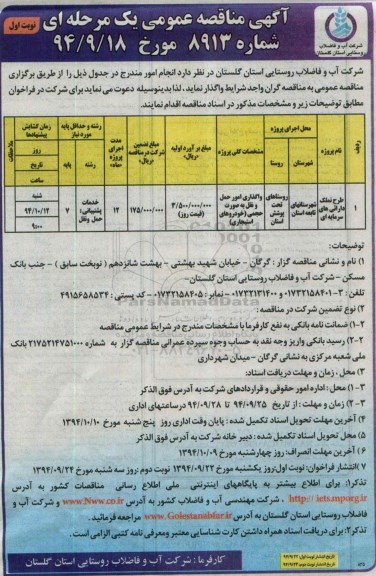 آگهی مناقصه عمومی یک مرحله ای
شماره ۸۹۱۳ مورخ ۹۴/۹/۱۸
نوبت اول
شرکت آب و فاضلاب
روستایی استان گلستان
شرکت آب و فاضلاب روستایی استان گلستان در نظر دارد انجام امور مندرج در جدول ذیل را از طریق برگزاری
مناقصه عمومی به مناقصه گران واجد شرایط واگذار نماید، لذا بدینوسیله دعوت می نماید برای شرکت در فراخوان
مطابق توضیحات زیر و مشخصات مذکور در اسناد مناقصه اقدام نمایند.
ردیف
نام پروژه
محل اجرای پروژه
شهرستان
روستا
مشخصات کلی پروژه
مبلغ بر آورد اولیه «ریال»
مبلغ تضمین شرکت در مناقصه «ریال»
مدت اجرای پروژه «ماه»
رشته و حداقل پایه مورد نیاز
رشته
پایه
زمان گشایش پیشنهادها
روز
تاریخ
ساعت
ملاحظات
۱
طرح تملک دارائی های سرمایه ای
شهرستانهای تابعه استان
روستاهای تحت پوشش استان
واگذاری امور حمل و نقل به صورت حجمی (خودروهای استیجاری)
۳/۵۰۰/۰۰۰/۰۰۰ (قیمت روز)
۱۷۵/۰۰۰/۰۰۰
۱۲
خدمات پشتیبانی: حمل ونقل
۷
شنبه
۹۴/۱۰/۱۲
۹:۰۰
توضیحات:
۱) نام و نشانی مناقصه گزار : گرگان - خیابان شهید بهشتی - بهشت شانزدهم (نوبخت سابق) - جنب بانک
مسکن - شرکت آب و فاضلاب روستایی استان گلستان-
تلفن : ۲-۰۱۷۳۲۱۵۸۴۰۱ و ۰۱۷۳۲۱۳۱۴۰۰- نمابر : ۰۱۷۳۲۱۵۸۴۰۵ - کد پستی : ۴۹۱۵۶۵۸۵۳۴
۲) نوع تضمین شرکت در مناقصه :
۲-۱) ضمانت نامه بانکی به نفع کارفرما با مشخصات مندرج در شرایط عمومی مناقصه
۲-۲) رسید بانکی واریز وجه نقد به حساب وجوه سپرده عمرانی مناقصه گزار به شماره ۲۱۷۵۲۱۴۷۵۱۰۰۰ بانک
ملی شعبه مرکزی به نشانی گرگان - میدان شهرداری
۳) محل، زمان و مهلت دریافت اسناد:
۳-۱) محل: اداره امور حقوقی و قراردادهای شرکت به آدرس فوق الذکر
۳-۲) زمان و مهلت: از تاریخ ۹۴/۰۹/۲۵ تا ۹۴/۰۹/۲۸ درساعتهای اداری
۴) آخرین مهلت تحویل اسناد تکمیل شده : پایان وقت اداری روز پنج شنبه مورخ ۱۳۹۴/۱۰/۱۰
۵) محل تحویل اسناد تکمیل شده : دبیر خانه شرکت به آدرس فوق الذکر
۶) آخرین مهلت انصراف: روز چهارشنبه مورخ ۱۳۹۴/۱۰/۰۹
۷) انتشار فراخوان: نوبت اول:روز یکشنبه مورخ ۱۳۹۴/۰۹/۲۲ نوبت دوم:روز سه شنبه مورخ ۱۳۹۴/۰۹/۲۴
تذکر۱: برای اطلاع بیشتر به پایگاههای اینترنتی ملی اطلاع رسانی مناقصات کشور به آدرس
http:// iets.mporg.ir ، شرکت مهندسی آب و فاضلاب کشور به آدرس www.Nww.co.ir و شرکت آب و
فاضلاب روستایی استان گلستان به آدرس www.Golestanabfar.ir مراجعه فرمائید.
تذکر۲: برای دریافت اسناد همراه داشتن کارت شناسایی معتبر ومعرفی نامه کتبی الزامی است.
کارفرما : شرکت آب و فاضلاب روستایی استان گلستان
تاریخ انتشار نوبت اول: ۹۴/۹/۲۲
تاریخ انتشار نوبت دوم: ۹۴/۹/۲۴